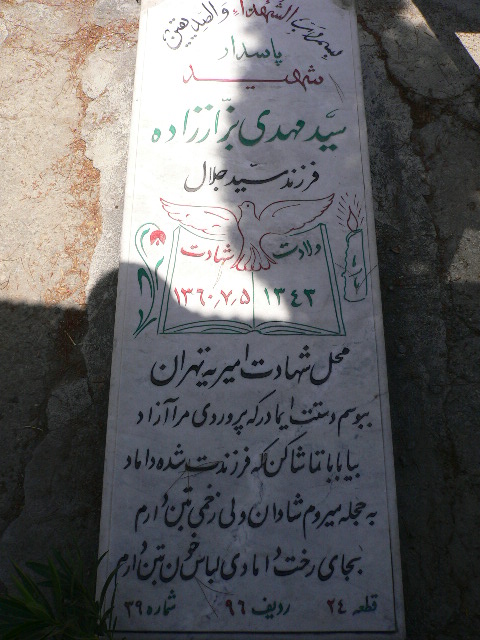 بسم رب الشهداء والصدیقین
پاسدار
شهید
سید مهدی بزّاززاده
فرزند سیّد جلال
ولادت شهادت
۱۳۴۳ ۱۳۶۰٫۷٫۵
محل شهادت امیریه تهران
ببوسم دستت ایمادر که پروردی مرا آزاد
بیا بابا تماشا کن که فرزندت شده داماد
به حجله میروم شادان ولی زخمی بتن دارم
بجای رخت دامادی لباس خون بتن دارم
قطعه ۲۴ ردیف ۹۶ شماره ۳۹